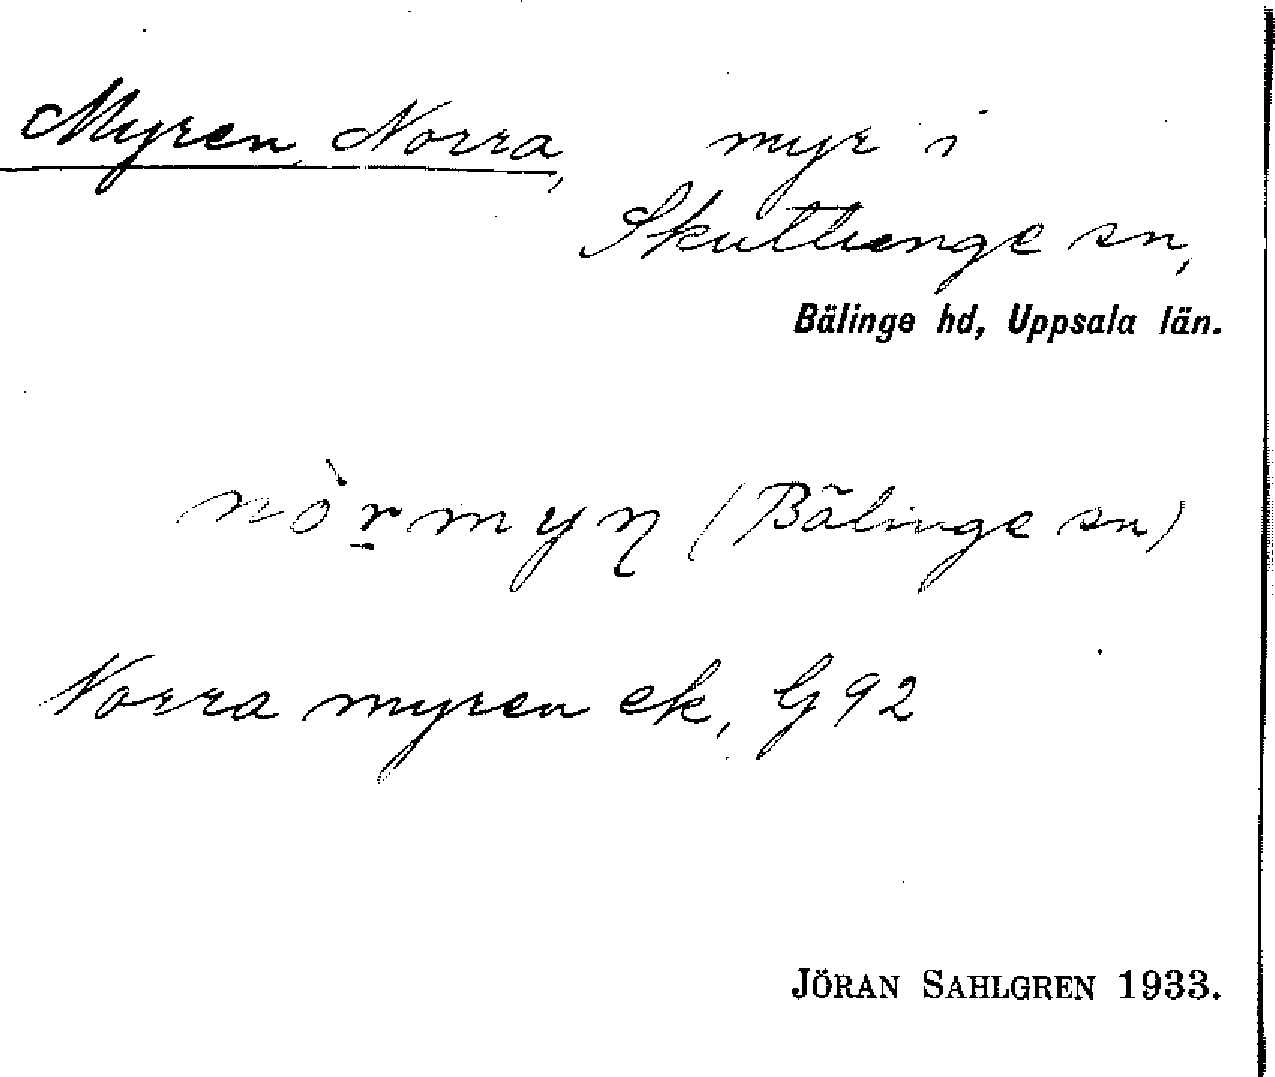 Myren, Norra, myr i
Skuttunge sn,
Bälinge hd, Uppsala län.
nòr̠myn̥ (Bälinge sn)
Norra myren ek, G 92
JÖRAN SAHLGREN 1933.